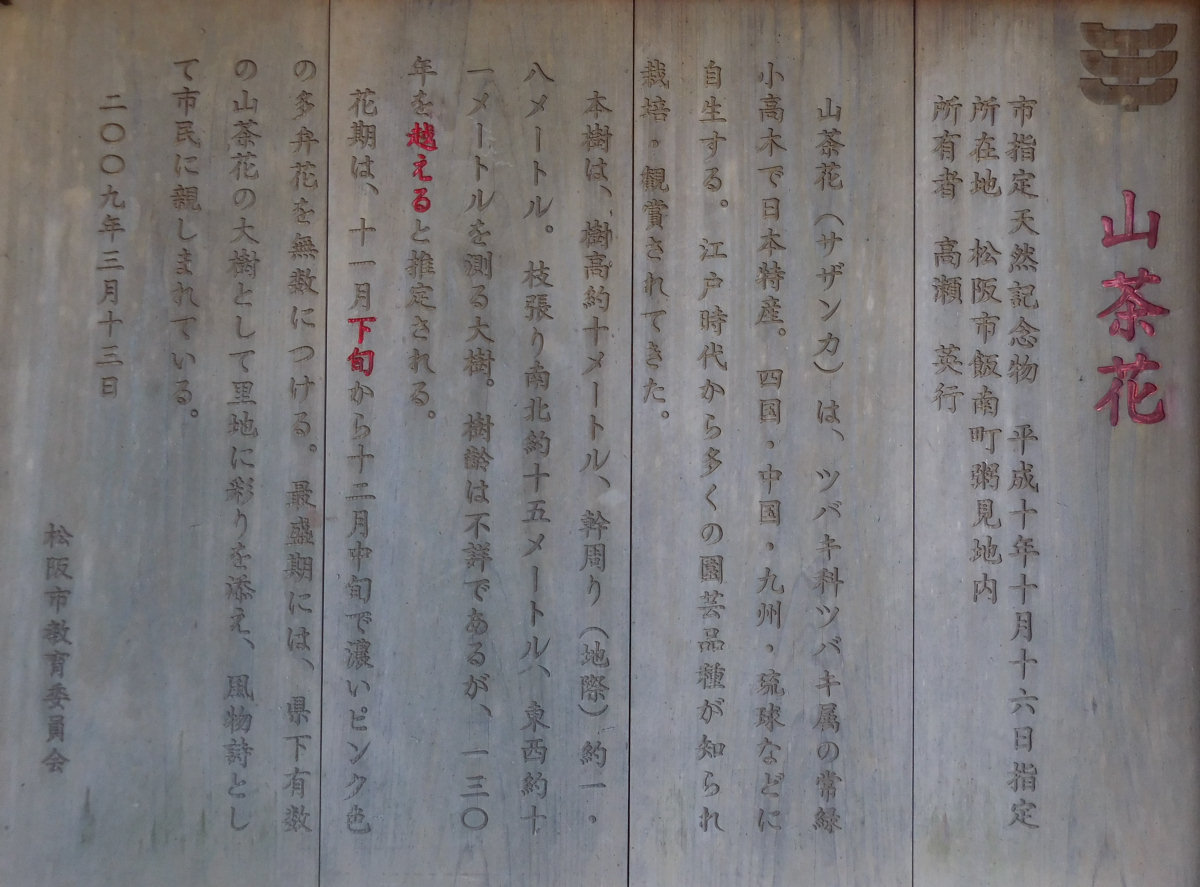 山茶花
市指定天然記念物　平成十年十月十六日指定
所在地　松阪市飯南町粥見地内
所有者　高瀬　英行
山茶花（サザンカ）は、ツバキ科ツバキ属の常緑
小高木で日本特産。四国・中国・九州・琉球などに
自生する。江戸時代から多くの園芸品種が知られ
栽培・観賞されてきた。
本樹は、樹高約十メートル、幹周り（地際）約一・
八メートル。枝張り南北約十五メートル、東西約十
一メートルを測る大樹。樹齢は不詳であるが、一三〇
年を越えると推定される。
花期は、十一月下旬から十二月中旬で濃いピンク色
の多弁花を無数につける。最盛期には、県下有数
の山茶花の大樹として里地に彩りを添え、風物詩とし
て市民に親しまれている。
二〇〇九年三月十三日
松阪市教育委員会